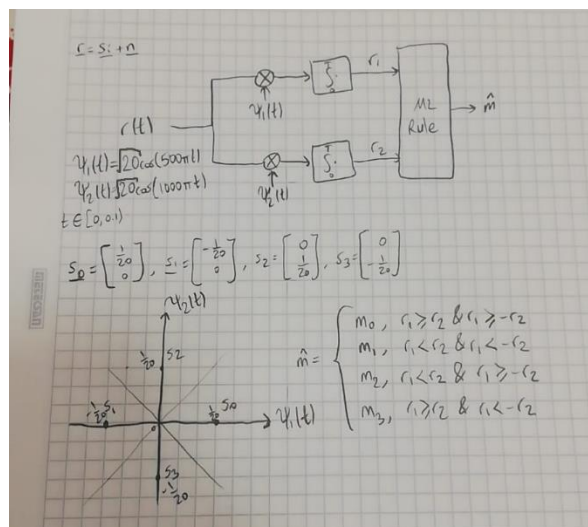 r = si + n
r(t)
ψ1(t)
ψ2(t)
T ∫ · 0
T ∫ · 0
r1
r2
ML
Rule
m̂
ψ1(t)=√20cos(500πt)
ψ2(t)=√20cos(1000πt)
t ∈ [0,0.1)
s0 = [1/20 0], s1 = [-1/20 0], s2 = [0 1/20], s3 = [0 -1/20]
ψ2(t)
1/20 s2
-1/20 s1
0
1/20 s0
ψ1(t)
s3
-1/20
m̂ = { m0, r1 ≥ r2 & r1 ≥ -r2
m1, r1 < r2 & r1 < -r2
m2, r1 < r2 & r1 ≥ -r2
m3, r1 ≥ r2 & r1 < -r2